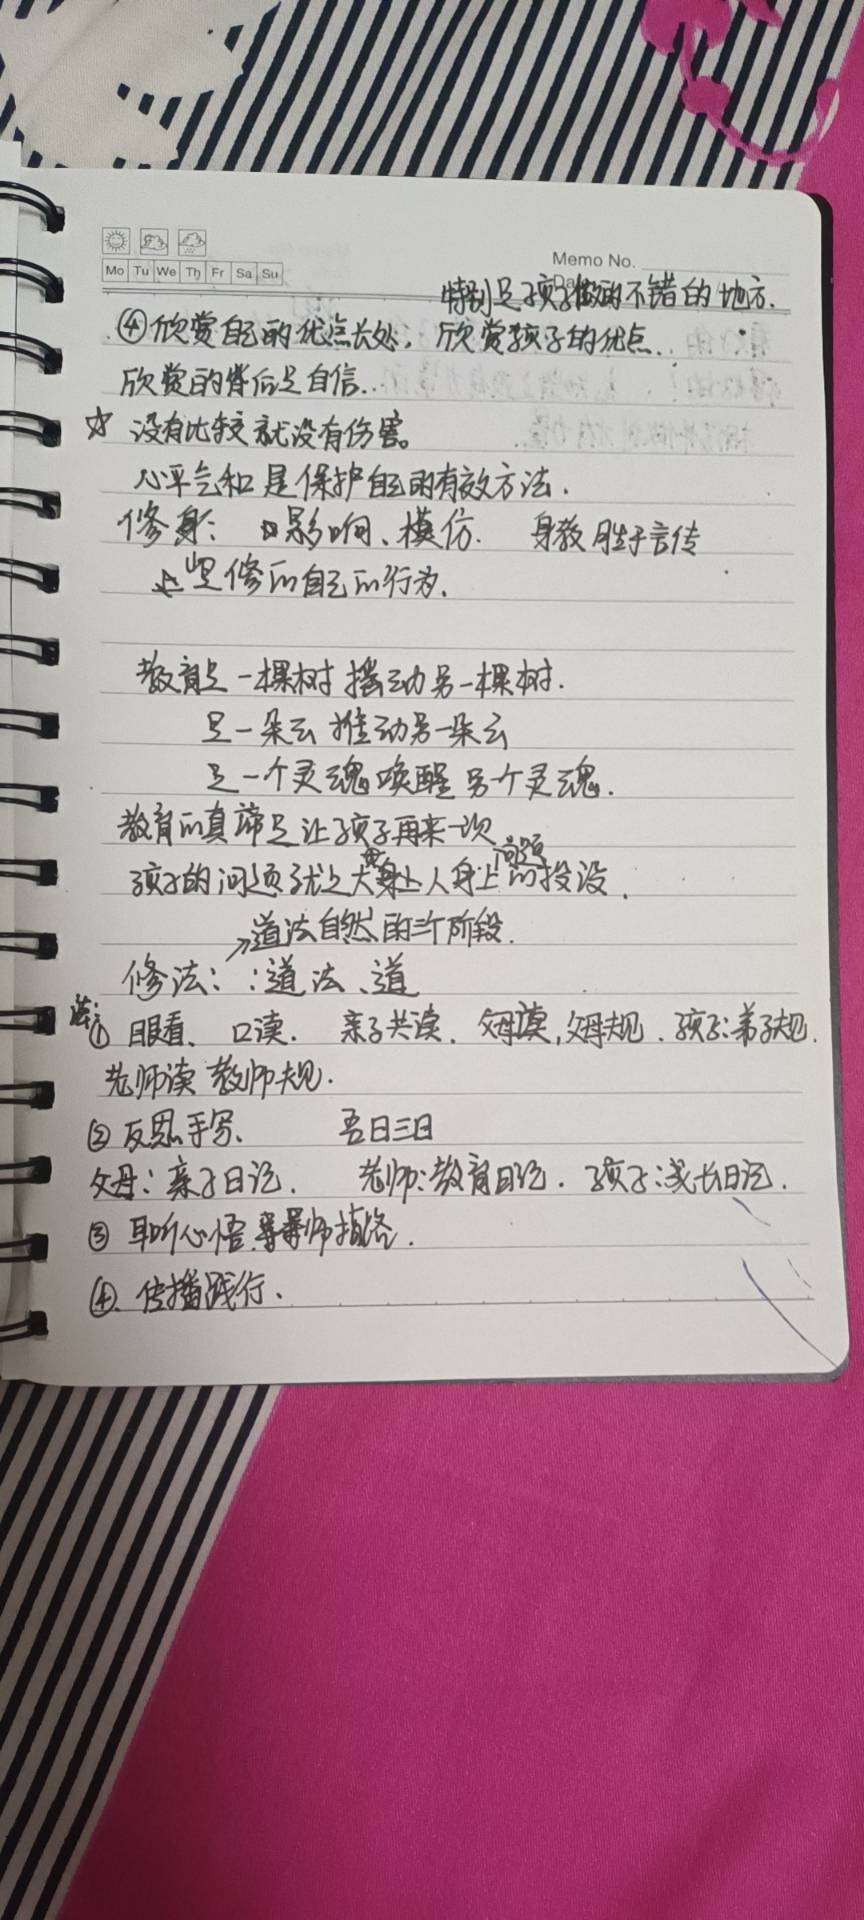 Memo No.
Mo Tu We Th Fr Sa Su
特别是孩子做的不错的地方.
④欣赏自己的优点长处, 欣赏孩子的优点.
欣赏的背后是自信.
☆ 没有比较就没有伤害。
心平气和是保护自己的有效方法.
修身: 影响、模仿. 身教胜于言传
修的自己的行为.
教育是一棵树摇动另一棵树.
是一朵云推动另一朵云
是一个灵魂唤醒另个灵魂.
教育的真谛是让孩子再来一次
孩子的问题就是大人身上问题的投设.
→道法自然的三个阶段.
修法: :道法、道
法:① 眼看、口读. 亲子共读. 父母读,父母规. 孩子:弟子规.
老师读教师规.
② 反思手写、 吾日三日
父母: 亲子日记. 老师:教育日记. 孩子:成长日记.
③ 耳听心悟.导师指路.
④. 传播践行.